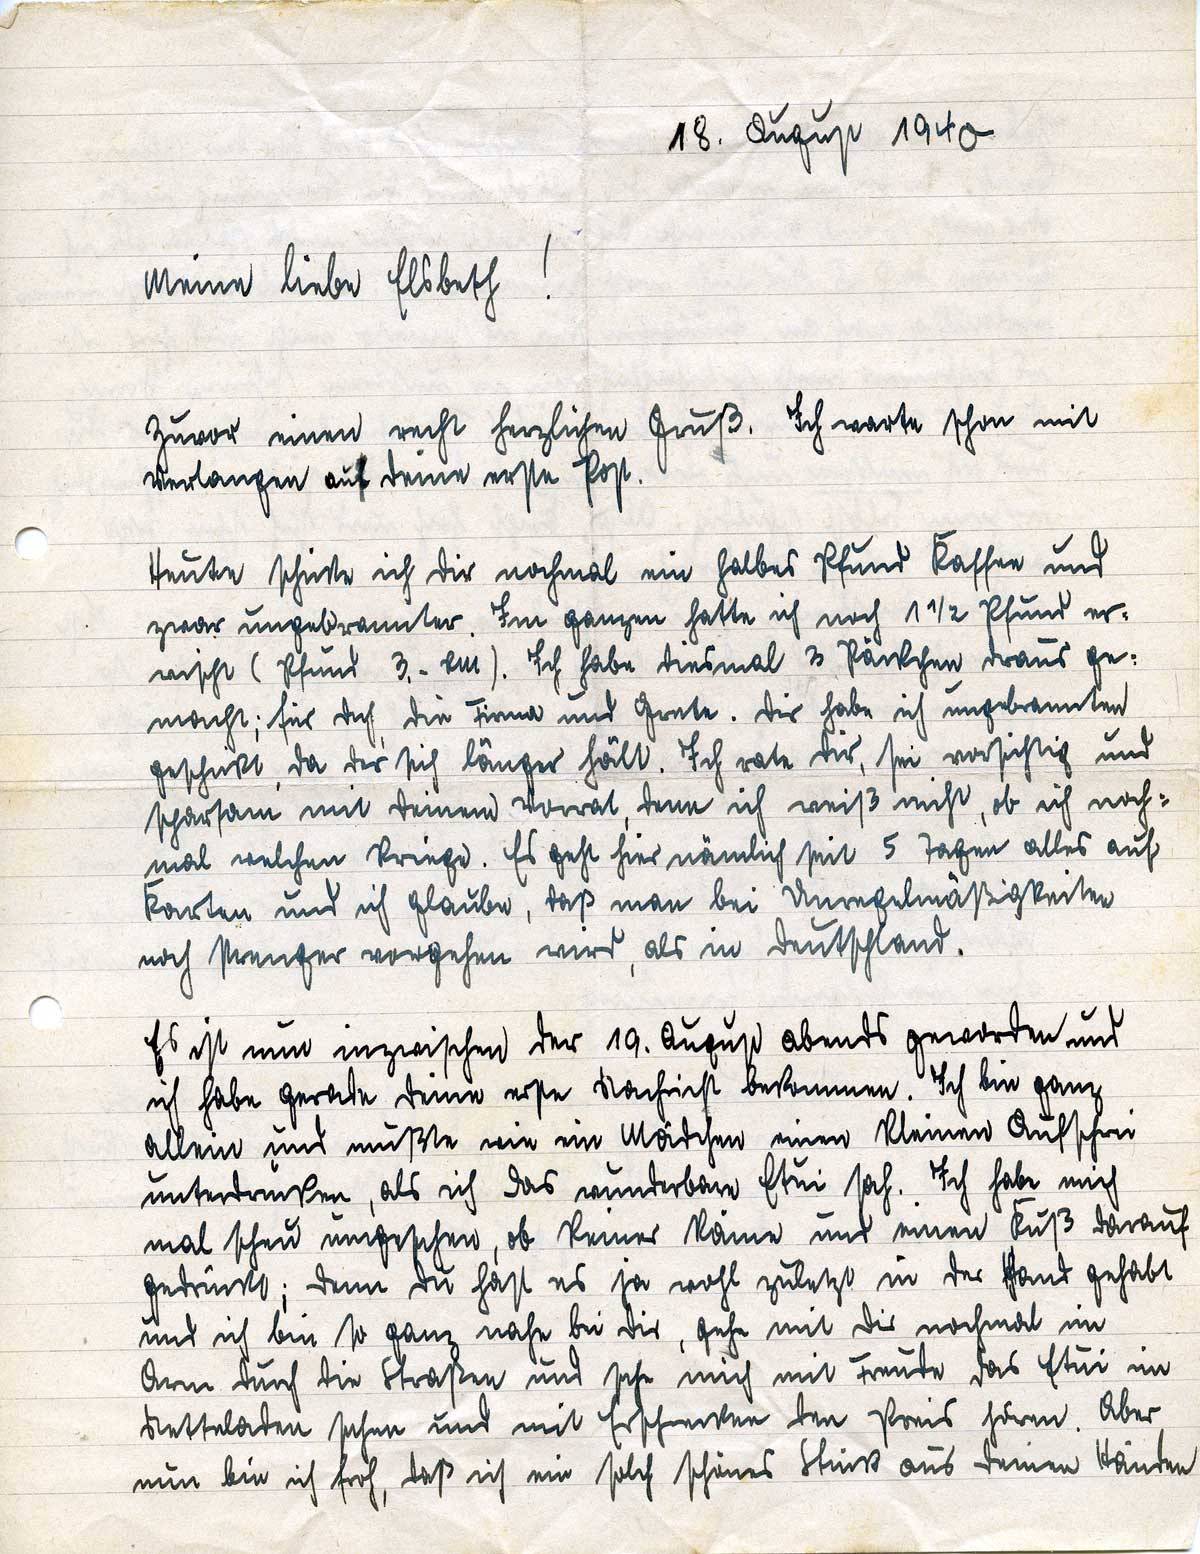 18. August 1940
Meine liebe Elsbeth !
Zuvor einen recht herzlichen Gruß. Ich warte schon mit
Verlangen auf deine erste Post.
Heute schicke ich dir nochmal ein halbes Pfund Kaffee und
zwar ungebrannter. Im ganzen hatte ich noch 1 1/2 Pfund er-
wischt ( Pfund 3.- RM ). Ich habe diesmal 3 Päckchen draus ge-
macht; für dich, die Firma und Grete. Dir habe ich ungebrannten
geschickt, da der sich länger hält. Ich rate dir, sei vorsichtig und
sparsam mit deinem Vorrat, denn ich weiß nicht, ob ich noch-
mal welchen kriege. Es geht hier nämlich seit 5 Tagen alles auf
Karten und ich glaube, daß man bei Unregelmäßigkeiten
noch strenger vorgehen wird, als in Deutschland.
Es ist nun inzwischen der 19. August abends geworden und
ich habe gerade deine erste Nachricht bekommen. Ich bin ganz
allein und mußte wie ein Mädchen einen kleinen Aufschrei
unterdrücken, als ich das wunderbare Etui sah. Ich habe mich
mal scheu umgesehen, ob keiner käme und einen Kuß darauf
gedrückt; denn du hast es ja wohl zuletzt in der Hand gehabt
und ich bin so ganz nahe bei dir, gehe mit dir nochmal im
Arm durch die Straßen und sehe mich mit Freude das Etui im
sehen und mit Erschrecken den Preis hören. Aber
nun bin ich froh, daß ich ein solch schönes Stück aus deinen Händen